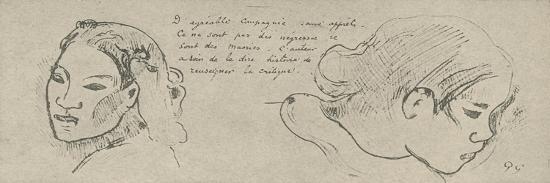 D'agréable Compagnie sans apprêts.
Ce ne sont pas des négresses ce
sont des Maories. L'auteur
a soin de le dire histoire de
renseigner la critique!
PG